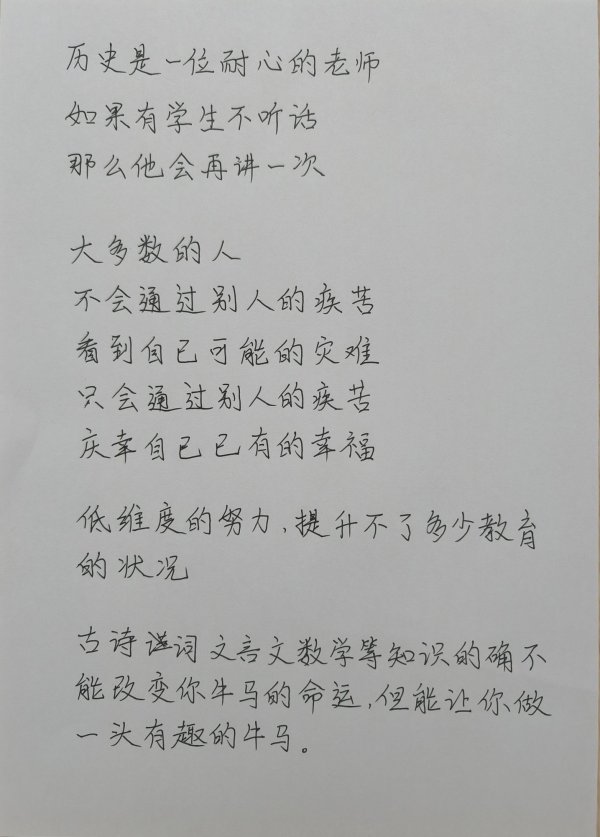 历史是一位耐心的老师
如果有学生不听话
那么他会再讲一次
大多数的人
不会通过别人的疾苦
看到自己可能的灾难
只会通过别人的疾苦
庆幸自己已有的幸福
低维度的努力,提升不了多少教育
的状况
古诗词文言文数学等知识的确不
能改变你牛马的命运,但能让你做
一头有趣的牛马。